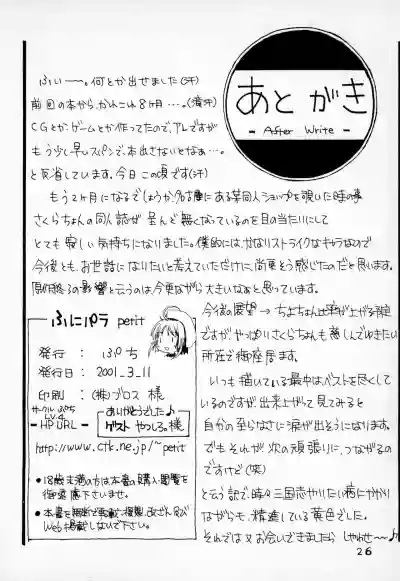 あとがき
- After Write -
ふい〜〜。何とか出せました(汗)
前回の本から、かれこれ8ヶ月・・・。(濱汗)
CGとか、ゲームとか作ってたので、アレですが
もう少し早いスパンで、本出さないとなぁ・・・。
と反省しています。今日この頃です(汗)
もう2ヶ月になるでしょうか名古屋にある某同人ショップを覗いた時の事
さくらちゃんの同人誌が、殆んど無くなっているのを目の当たりにして
とても寂しい気持ちになりました。(僕的には、かなりストライクなキャラなので
今後とも、お世話になりたいと考えていただけに、尚更そう感じたのだと思います。
の影響と云うのは今更ながら大きいなぁと思っています。
今後の展望→ちよちゃん比率が上がる予定
ですが、やっぱりさくらちゃんも愛してゆきたい
所存で御座居ます。
いつも描いている最中はベストを尽くして
いるのですが、出来上がって見てみると
自分の至らなさに涙が出そうになります。
でもそれが次の頑張りに、つながるので
すけど(笑)
と云う訳で、時々三国志やりたい病にかかり
ながらも、精進している黄色でした。
それでは又お会いできましたら しゃわせ〜♪
ふにパラ petit
発行 : ぷち
発行日 : 2001_3_11
印刷 : (株)ブロス 様
サークル ぷち
- HP URL -
ありがとうでした♪
ゲスト やつしろ。様
http://www.ctk.ne.jp/~petit
●18歳未満の方は本書の購入・閲覧を
御遠慮下さいませ。
●本書を無断で転載・複製、改ざん及び
Web掲載しないで下さい。
26